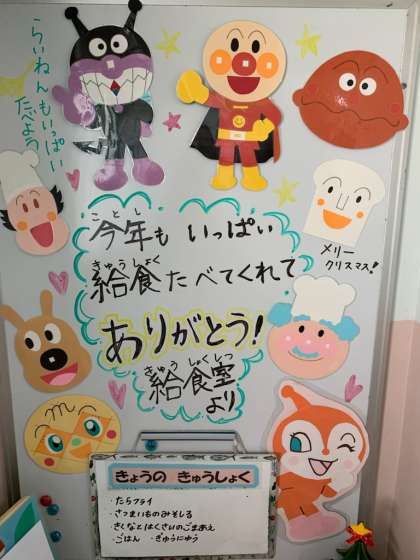 らいねんもいっぱい
たべよう
ことし
今年も いっぱい
きゅうしょく
給食たべてくれて
ありがとう!
きゅうしょくしつ
給食室
より
メリー
クリスマス!
きょうの きゅうしょく
・たらフライ
・さつまいものみそしる
・きくなとはくさいのごまあえ
・ごはん ・ぎゅうにゅう